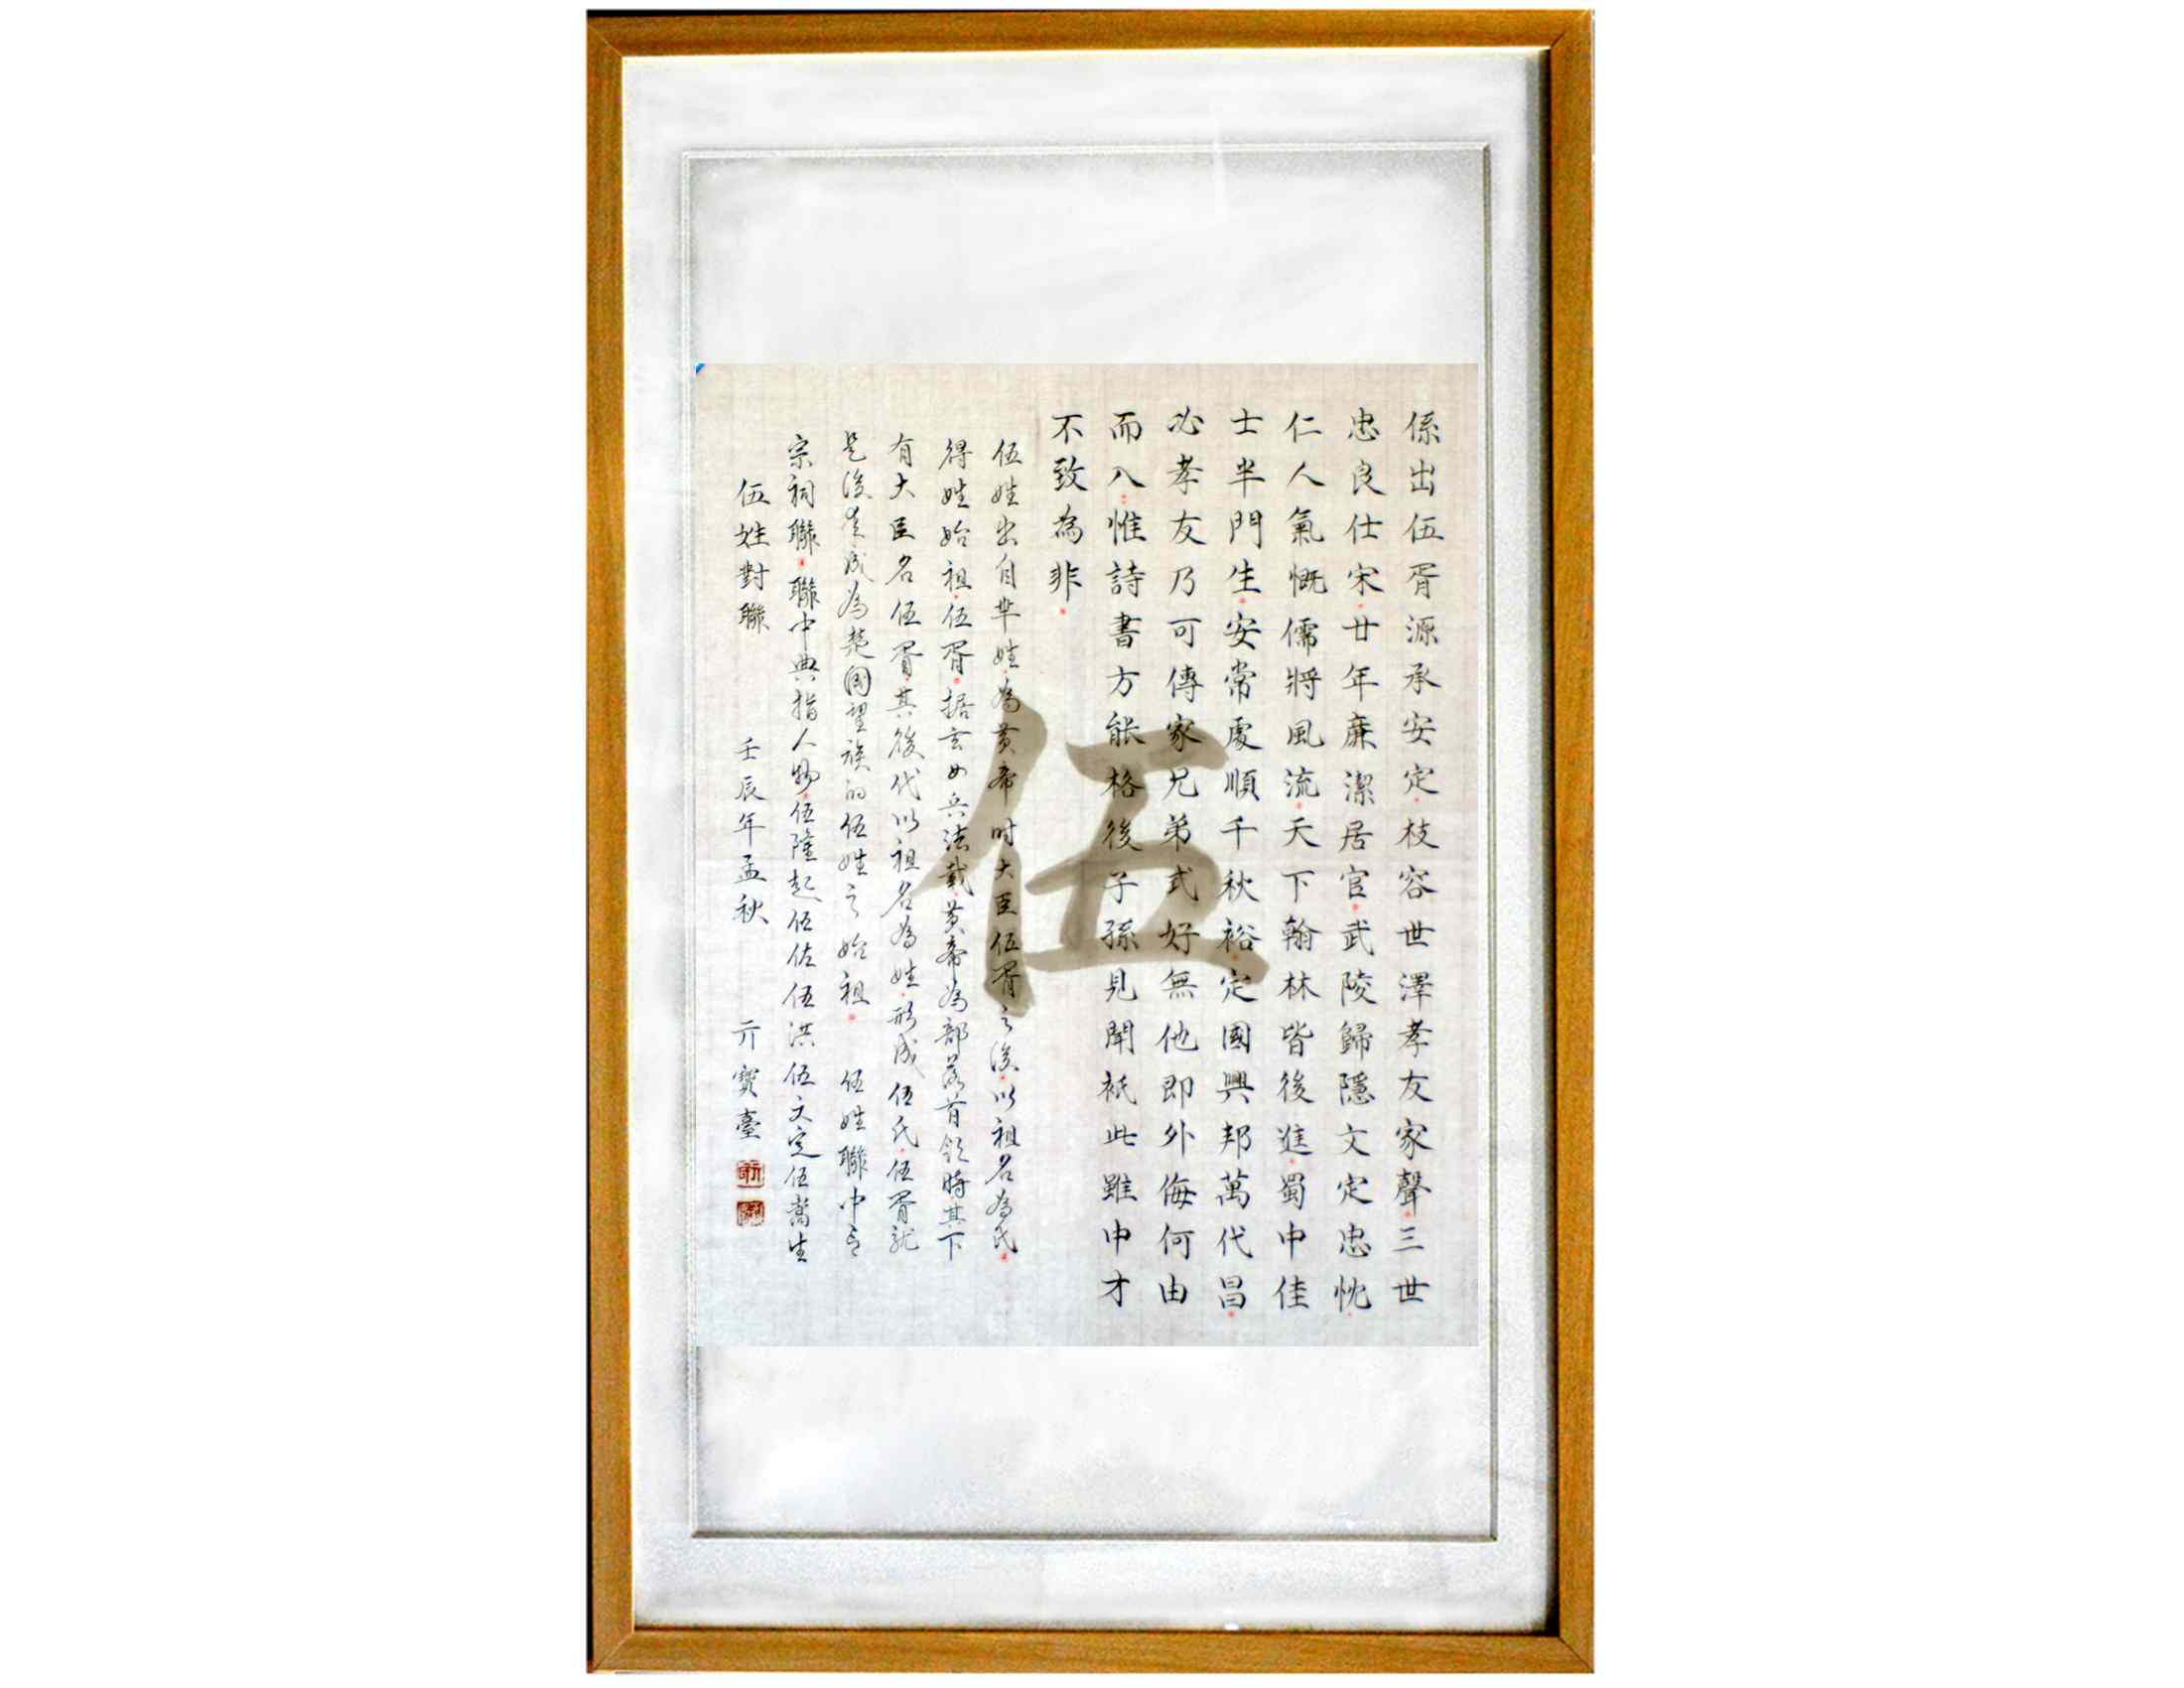 係出伍胥源承安定枝容世澤孝友家聲三世
忠良仕宋廿年廉潔居官武陵歸隱文定忠忱
仁人氣慨儒將風流天下翰林皆後進蜀中佳
士半門生安常處順千秋裕定國興邦萬代昌
必孝友乃可傳家兄弟式好無他即外侮何由
而入惟詩書方能格後子孫見聞祇此雖中才
不致為非
伍姓出自芈姓為黃帝时大臣伍胥之後以祖名為氏
得姓始祖伍胥据玄女兵法載黃帝為部落首領時其下
有大臣名伍胥其後代以祖名為姓形成伍氏伍胥就
是後來成為楚國望族的伍姓之始祖 伍姓聯中有
宗祠聯聯中典指人物伍隆起伍佐伍洪伍文定伍嵩生
伍姓對聯 壬辰年孟秋 亓寶臺
伍